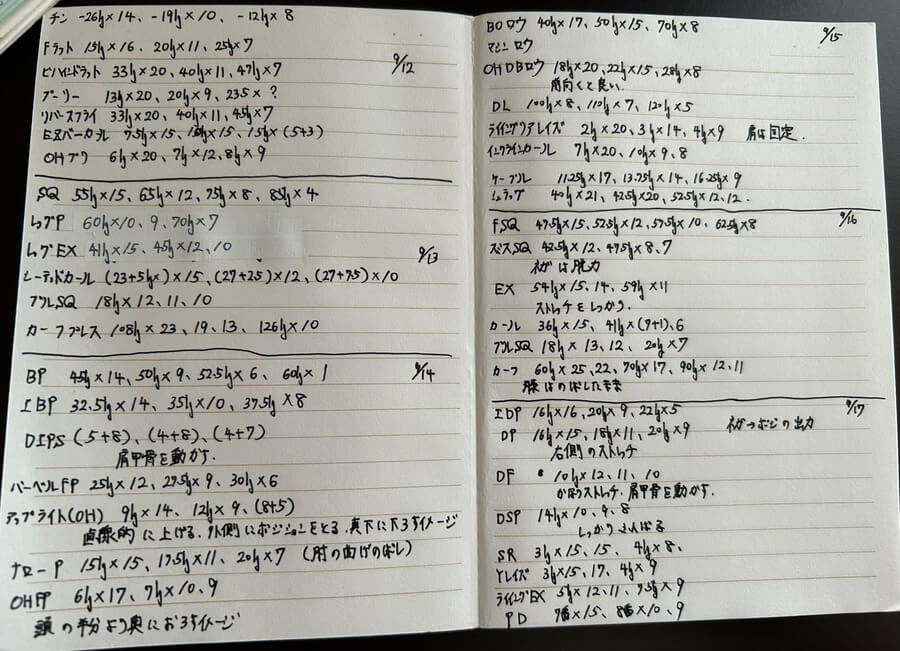 チン -26kg×14、-19kg×10、-12kg×8
Fラット 15kg×16、20kg×11、25kg×7
9/12
ビハインドラット 33kg×20、40kg×11、47kg×7
プーリー 13kg×20、20kg×9、23.5×?
リバースフライ 33kg×20、40kg×11、45kg×7
EZバーカール ×15、15kg×(5+3)
OHプリ 6kg×20、7kg×12、8kg×9
SQ 55kg×15、65kg×12、75kg×8、85kg×4
レッグP 60kg×10、9、70kg×7
レッグEX 41kg×15、45kg×12、10
9/13
シーテッドカール (23+5kg)×15、(27+2.5)×12、(27+7.5)×10
ブルSQ 18kg×12、11、10
カーフプレス 108kg×23、19、13、126kg×10
BP 45kg×14、50kg×9、52.5kg×6、60kg×1
9/14
IBP 32.5kg×14、35kg×10、37.5kg×8
DIPS (5+8)、(4+8)、(4+7)
肩甲骨を動かす.
バーベルFP 25kg×12、27.5kg×9、30kg×6
アップライト(OH) 9kg×14、12kg×9、(8+5)
直線的に上げる、外側にポジションをとる、真下に下ろすイメージ
ナローP 15kg×15、17.5kg×11、20kg×7 (肘の曲げのばし)
OHFP 6kg×17、7kg×10、9
頭の半分より奥におろすイメージ
BOロウ 40kg×17、50kg×15、70kg×8
9/15
マシンロウ
OHDBロウ 18kg×20、22kg×15、28kg×8
向くと良い.
DL 100kg×8、110kg×7、120kg×5
ライイングリアレイズ 2kg×20、3kg×14、4kg×9 肩は固定.
インクラインカール 7kg×20、10kg×9、8
ケーブル 11.25kg×17、13.75kg×14、16.25kg×9
シュラッグ 40kg×21、42.5kg×20、52.5kg×12、12.
FSQ 47.5kg×15、52.5kg×12、57.5kg×10、62.5kg×8
9/16
SQ 42.5kg×12、47.5kg×8、7
ネガは脱力
EX 54kg×15、14、59kg×11
ストレッチをしっかり.
カール 36kg×15、41kg×(9+1)、6
ブルSQ 18kg×13、12、20kg×7
カーフ 60kg×25、22、70kg×17、90kg×12、11
膝はのばしたまま
IDP 16kg×16、20kg×9、22kg×5
9/17
DP 16kg×15、18kg×11、20kg×9 ネガ→ポジの出力
右側のストレッチ
DF 10kg×12、11、10
ストレッチ.肩甲骨を動かす.
DSP 14kg×10、9、8
しっかり
SR 3kg×15、15、4kg×8、
Yレイズ 3kg×15、17、4kg×9
ライイングEX 5kg×12、11、7.5kg×9
PD 7番×15、8番×10、9